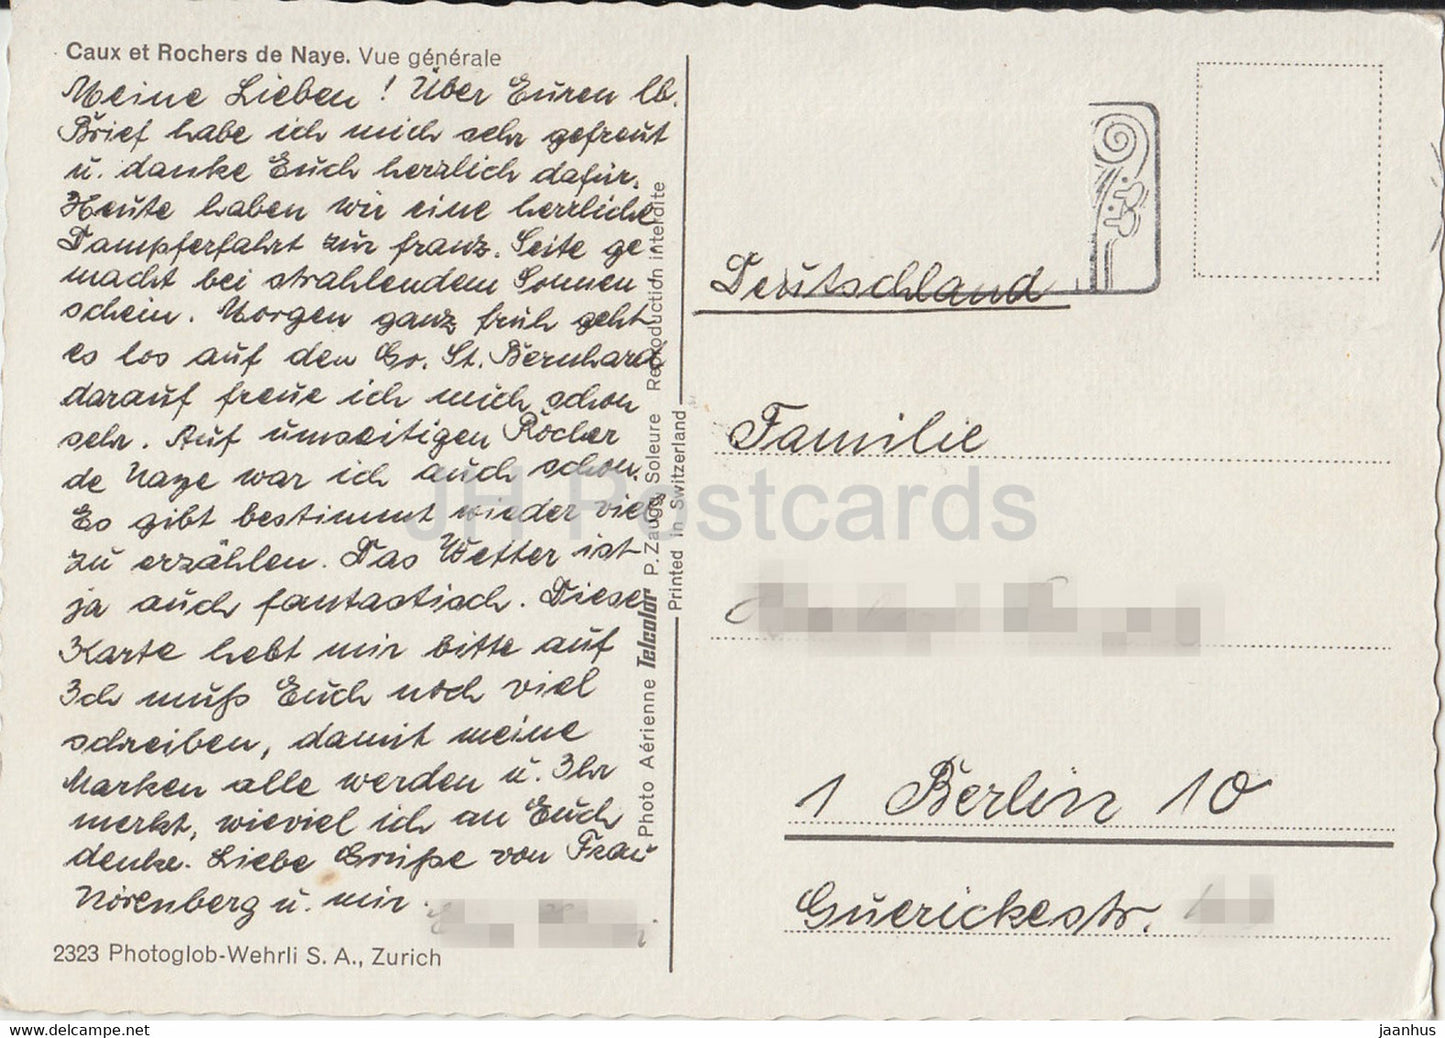 Caux et Rochers de Naye. Vue générale
Meine Lieben! Über Euren lb.
Brief habe ich mich sehr gefreut
u. danke Euch herzlich dafür.
Heute haben wir eine herrliche
Dampferfahrt zur franz. Seite ge
macht bei strahlendem Sonnen
schein. Morgen ganz früh geht
es los auf den Gr. St. Bernhard
darauf freue ich mich schon
sehr. Auf umseitigen Rocher
de Naye war ich auch schon.
Es gibt bestimmt wieder viel
zu erzählen. Das Wetter ist
ja auch fantastisch. Diese
Karte hebt mir bitte auf
Ich muß Euch noch viel
schreiben, damit meine
Marken alle werden u. Ihr
merkt, wieviel ich an Euch
denke. Liebe Grüße von Frau
Nörenberg u. mir.
2323 Photoglob-Wehrli S. A., Zurich
Photo Aérienne Telcolor P. Zaugg, Soleure Reproduction interdite
Printed in Switzerland
Deutschland
Familie
1 Berlin 10
Guerickestr.
JH Postcards
https://www.hippostcard.com/store/jaanhus